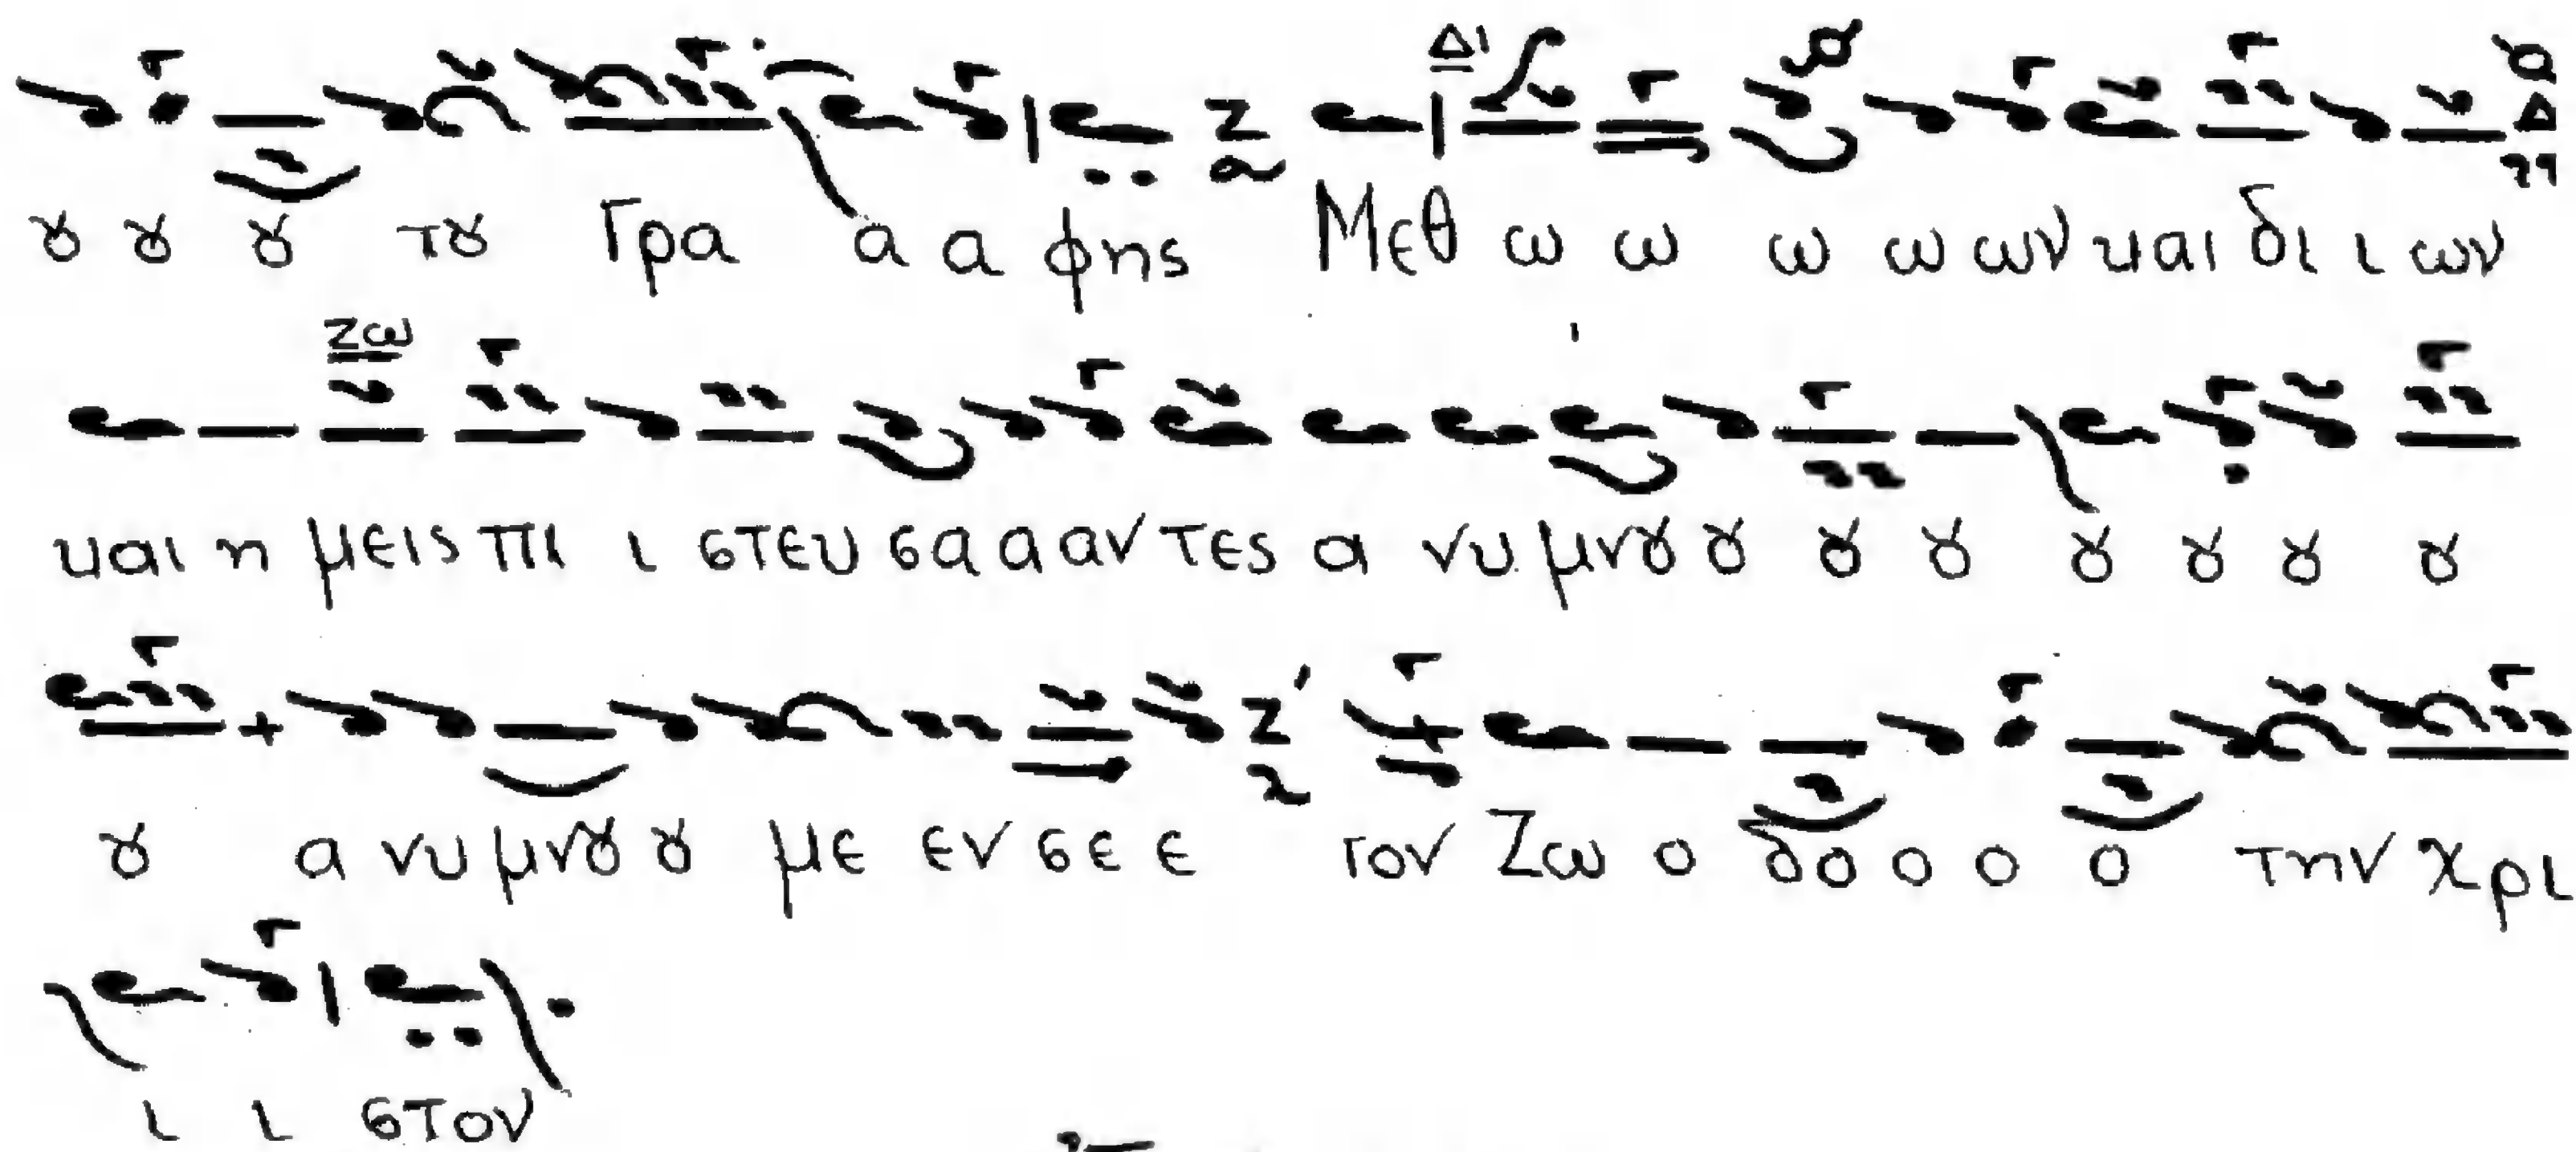 ȣ ȣ ȣ τȣ Γρα α α φης Μεθ ω ω ω ω ων και δι ι ων
και η μεις πι ι στευ σα α αν τες α νυ μνȣ ȣ ȣ ȣ ȣ ȣ ȣ ȣ
ȣ α νυ μνȣ ȣ με εν σε ε τον Ζω ο δο ο ο ο την χρι
ι ι στον